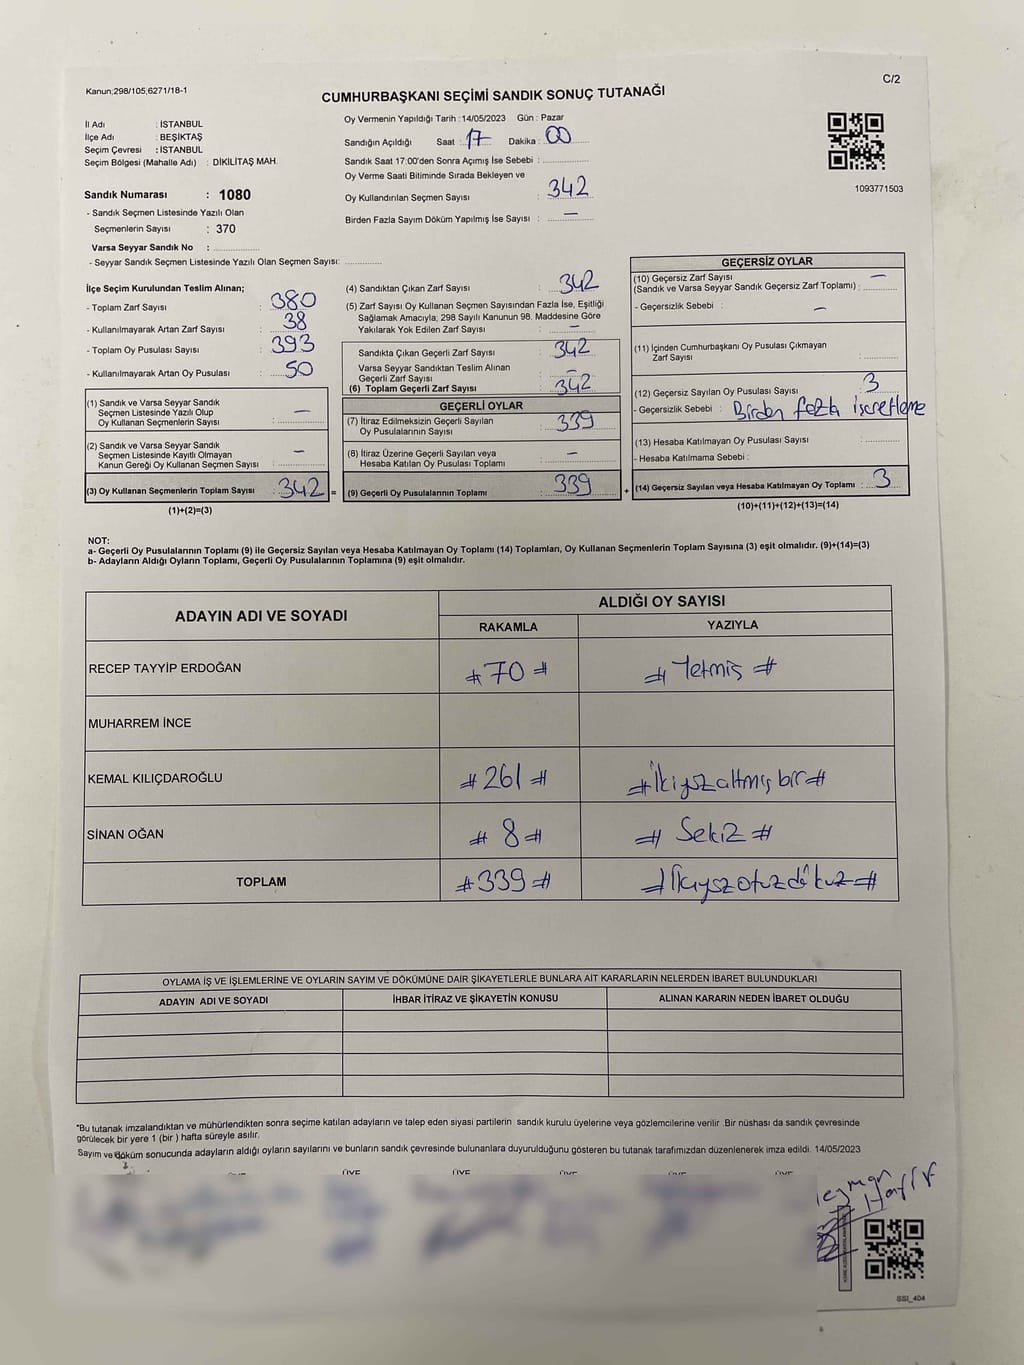 C/2
Kanun;298/105,6271/18-1
CUMHURBAŞKANI SEÇİMİ SANDIK SONUÇ TUTANAĞI
İl Adı : İSTANBUL
İlçe Adı : BEŞİKTAŞ
Seçim Çevresi : İSTANBUL
Seçim Bölgesi (Mahalle Adı) : DİKİLİTAŞ MAH.
Sandık Numarası : 1080
- Sandık Seçmen Listesinde Yazılı Olan
Seçmenlerin Sayısı : 370
Varsa Seyyar Sandık No :
- Seyyar Sandık Seçmen Listesinde Yazılı Olan Seçmen Sayısı:
Oy Vermenin Yapıldığı Tarih : 14/05/2023 Gün : Pazar
Sandığın Açıldığı Saat : 17 Dakika : 00
Sandık Saat 17:00'den Sonra Açımış İse Sebebi :
Oy Verme Saati Bitiminde Sırada Bekleyen ve
Oy Kullandırılan Seçmen Sayısı : 342
Birden Fazla Sayım Döküm Yapılmış İse Sayısı : —
1093771503
İlçe Seçim Kurulundan Teslim Alınan;
- Toplam Zarf Sayısı : 380
- Kullanılmayarak Artan Zarf Sayısı : 38
- Toplam Oy Pusulası Sayısı : 393
- Kullanılmayarak Artan Oy Pusulası : 50
(1) Sandık ve Varsa Seyyar Sandık
Seçmen Listesinde Yazılı Olup
Oy Kullanan Seçmenlerin Sayısı : —
(2) Sandık ve Varsa Seyyar Sandık
Seçmen Listesinde Kayıtlı Olmayan
Kanun Gereği Oy Kullanan Seçmen Sayısı : —
(3) Oy Kullanan Seçmenlerin Toplam Sayısı : 342 =
(1)+(2)=(3)
(4) Sandıktan Çıkan Zarf Sayısı : 342
(5) Zarf Sayısı Oy Kullanan Seçmen Sayısından Fazla İse, Eşitliği
Sağlamak Amacıyla; 298 Sayılı Kanunun 98. Maddesine Göre
Yakılarak Yok Edilen Zarf Sayısı : —
Sandıkta Çıkan Geçerli Zarf Sayısı : 342
Varsa Seyyar Sandıktan Teslim Alınan
Geçerli Zarf Sayısı : —
(6) Toplam Geçerli Zarf Sayısı : 342
GEÇERLİ OYLAR
(7) İtiraz Edilmeksizin Geçerli Sayılan
Oy Pusulalarının Sayısı : 339
(8) İtiraz Üzerine Geçerli Sayılan veya
Hesaba Katılan Oy Pusulası Toplamı : —
(9) Geçerli Oy Pusulalarının Toplamı : 339 +
GEÇERSİZ OYLAR
(10) Geçersiz Zarf Sayısı —
(Sandık ve Varsa Seyyar Sandık Geçersiz Zarf Toplamı) :
- Geçersizlik Sebebi : —
(11) İçinden Cumhurbaşkanı Oy Pusulası Çıkmayan
Zarf Sayısı :
(12) Geçersiz Sayılan Oy Pusulası Sayısı : 3
- Geçersizlik Sebebi : Birden fazla isaretleme
(13) Hesaba Katılmayan Oy Pusulası Sayısı :
- Hesaba Katılmama Sebebi :
(14) Geçersiz Sayılan veya Hesaba Katılmayan Oy Toplamı : 3
(10)+(11)+(12)+(13)=(14)
NOT:
a- Geçerli Oy Pusulalarının Toplamı (9) ile Geçersiz Sayılan veya Hesaba Katılmayan Oy Toplamı (14) Toplamları, Oy Kullanan Seçmenlerin Toplam Sayısına (3) eşit olmalıdır. (9)+(14)=(3)
b- Adayların Aldığı Oyların Toplamı, Geçerli Oy Pusulalarının Toplamına (9) eşit olmalıdır.
ADAYIN ADI VE SOYADI
ALDIĞI OY SAYISI
RAKAMLA YAZIYLA
RECEP TAYYİP ERDOĞAN #70# #Yetmiş#
MUHARREM İNCE
KEMAL KILIÇDAROĞLU #261# #İkiyszaltmışbir#
SİNAN OĞAN #8# #Sekiz#
TOPLAM #339#
OYLAMA İŞ VE İŞLEMLERİNE VE OYLARIN SAYIM VE DÖKÜMÜNE DAİR ŞİKAYETLERLE BUNLARA AİT KARARLARIN NELERDEN İBARET BULUNDUKLARI
ADAYIN ADI VE SOYADI İHBAR İTİRAZ VE ŞİKAYETİN KONUSU ALINAN KARARIN NEDEN İBARET OLDUĞU
"Bu tutanak imzalandıktan ve mühürlendikten sonra seçime katılan adayların ve talep eden siyasi partilerin sandık kurulu üyelerine veya gözlemcilerine verilir .Bir nüshası da sandık çevresinde
görülecek bir yere 1 (bir ) hafta süreyle asılır.
Sayım ve döküm sonucunda adayların aldığı oyların sayılarını ve bunların sandık çevresinde bulunanlara duyurulduğunu gösteren bu tutanak tarafımızdan düzenlenerek imza edildi. 14/05/2023
SSI_404